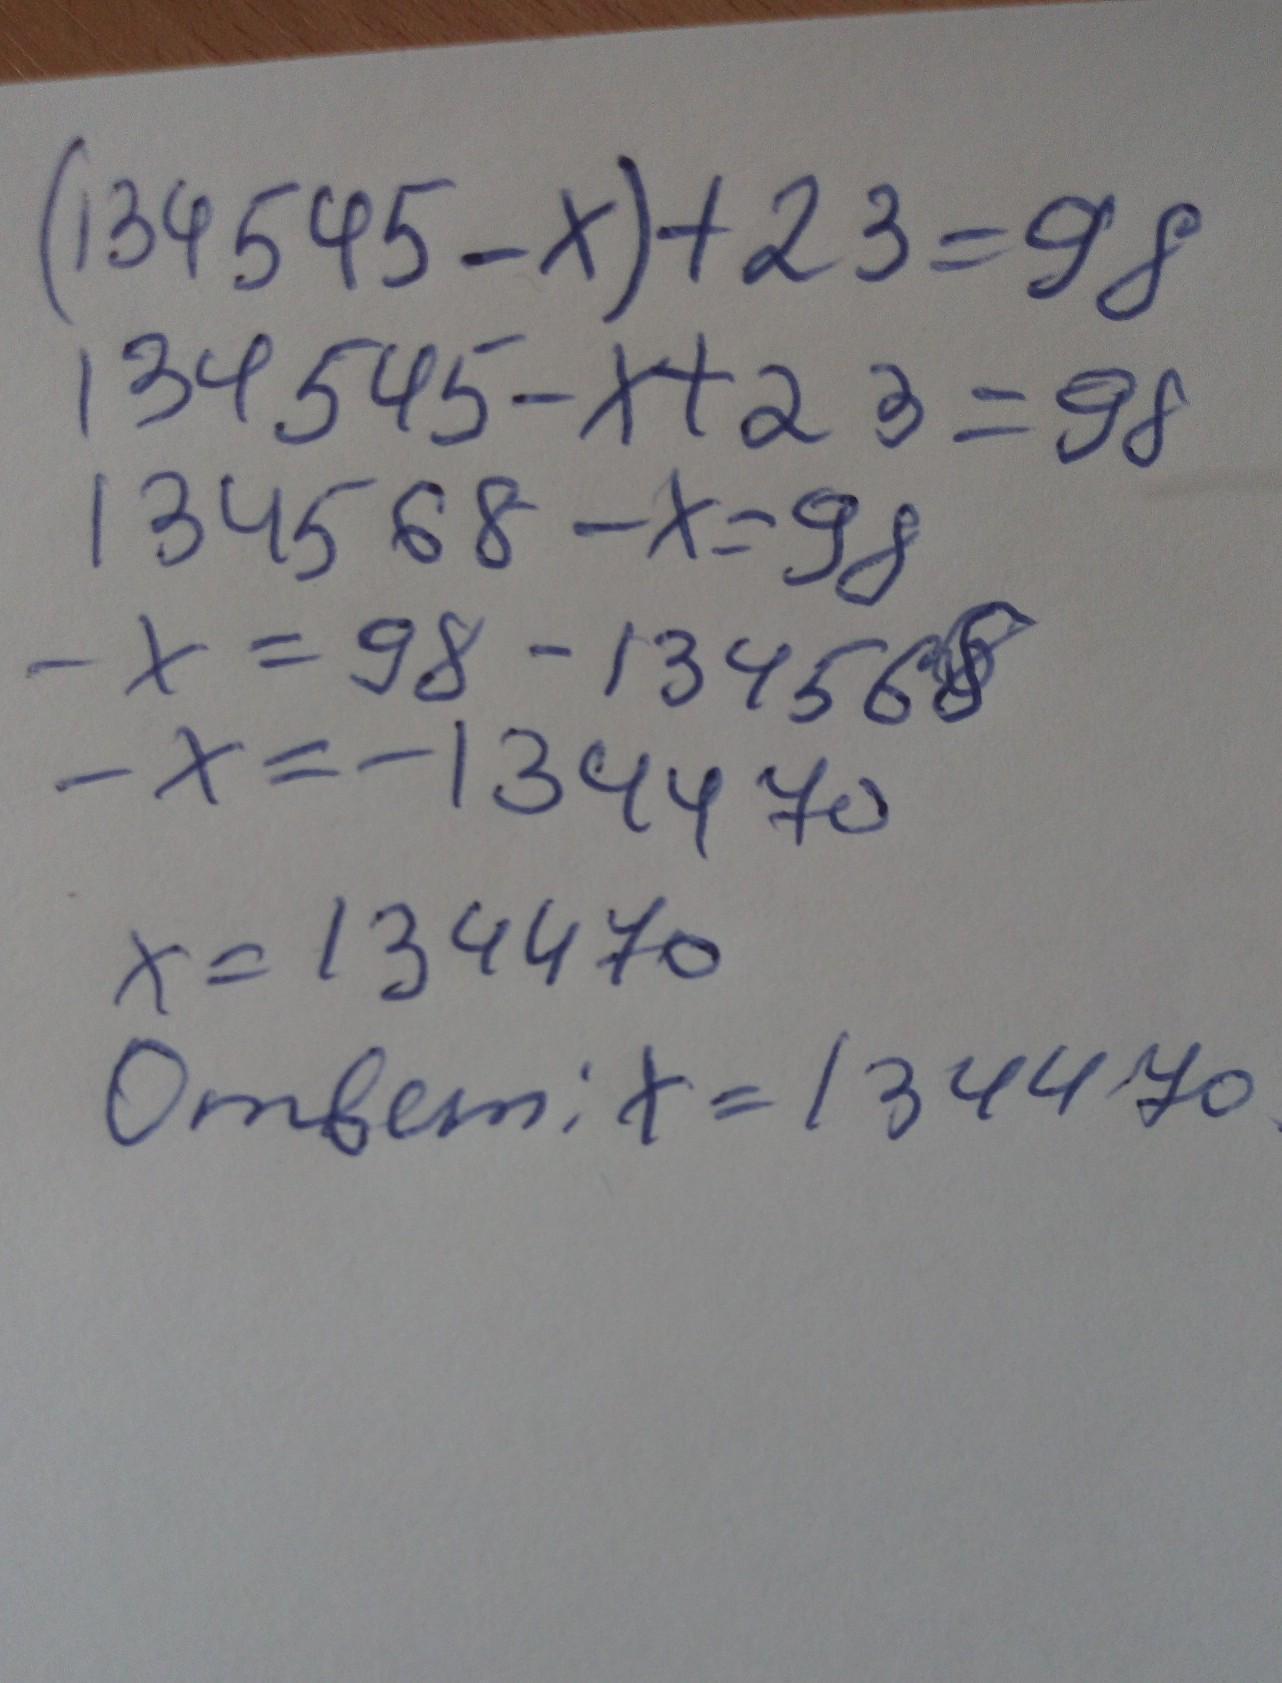 (134545-x)+23=98
134545-x+23=98
134568-x=98
-x=98-134568
-x=-134470
x=134470
Ответ: x=134470.